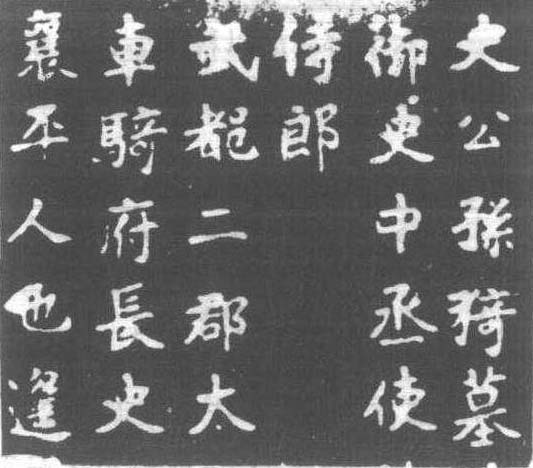 公孫猗墓
御史中丞使
侍郎
武都二郡太
車騎府長史
襄平人也